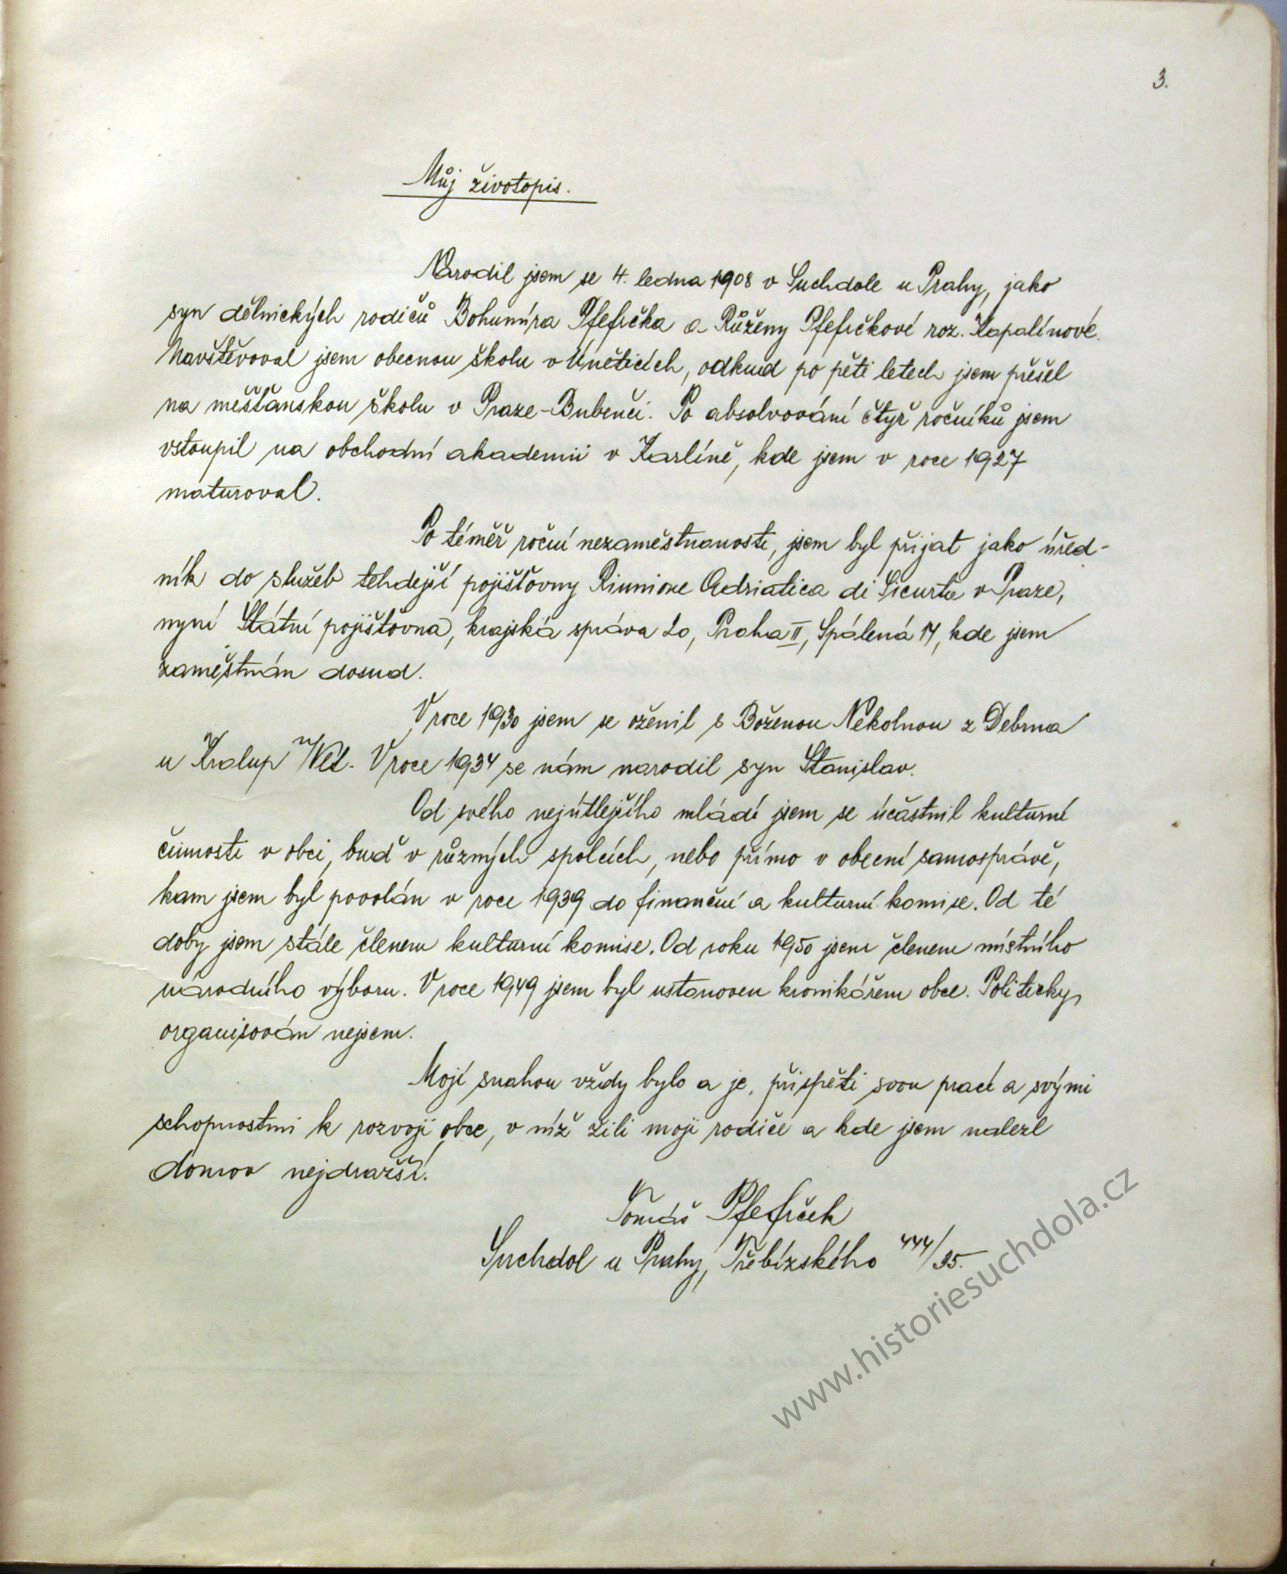 3.
Můj životopis.
Narodil jsem se 4. ledna 1908 v Suchdole u Prahy, jako
syn dělnických rodičů Bohumíra Pfefrčka a Růženy Pfefrčkové roz. Kapalínové.
Navštěvoval jsem obecnou školu v Úněticích, odkud po pěti letech jsem přešel
na měšťanskou školu v Praze-Bubenči. Po absolvování čtyř ročníků jsem
vstoupil na obchodní akademii v Karlíně, kde jsem v roce 1927
maturoval.
Po téměř roční nezaměstnanosti, jsem byl přijat jako úřed-
ník do služeb tehdejší pojišťovny Riunione Adriatica di Sicurta v Praze,
nyní Státní pojišťovna, krajská správa 20, Praha II, Spálená 14, kde jsem
zaměstnán dosud.
V roce 1930 jsem se oženil s Boženou Nekolnou z Debrna
u Kralup n/Vlt. V roce 1934 se nám narodil syn Stanislav.
Od svého nejútlejšího mládí jsem se účastnil kulturní
činnosti v obci, buď v různých spolcích, nebo přímo v obecní samosprávě,
kam jsem byl povolán v roce 1939 do finanční a kulturní komise. Od té
doby jsem stále členem kulturní komise. Od roku 1950 jsem členem místního
národního výboru. V roce 1949 jsem byl ustanoven kronikářem obce. Politicky
organisován nejsem.
Mojí snahou vždy bylo a je, přispěti svou prací a svými
schopnostmi k rozvoji obce, v níž žili moji rodiče a kde jsem nalezl
domov nejdražší.
Tomáš Pfefrček
Suchdol u Prahy, Třebízského 444/35.
www.historiesuchdola.cz